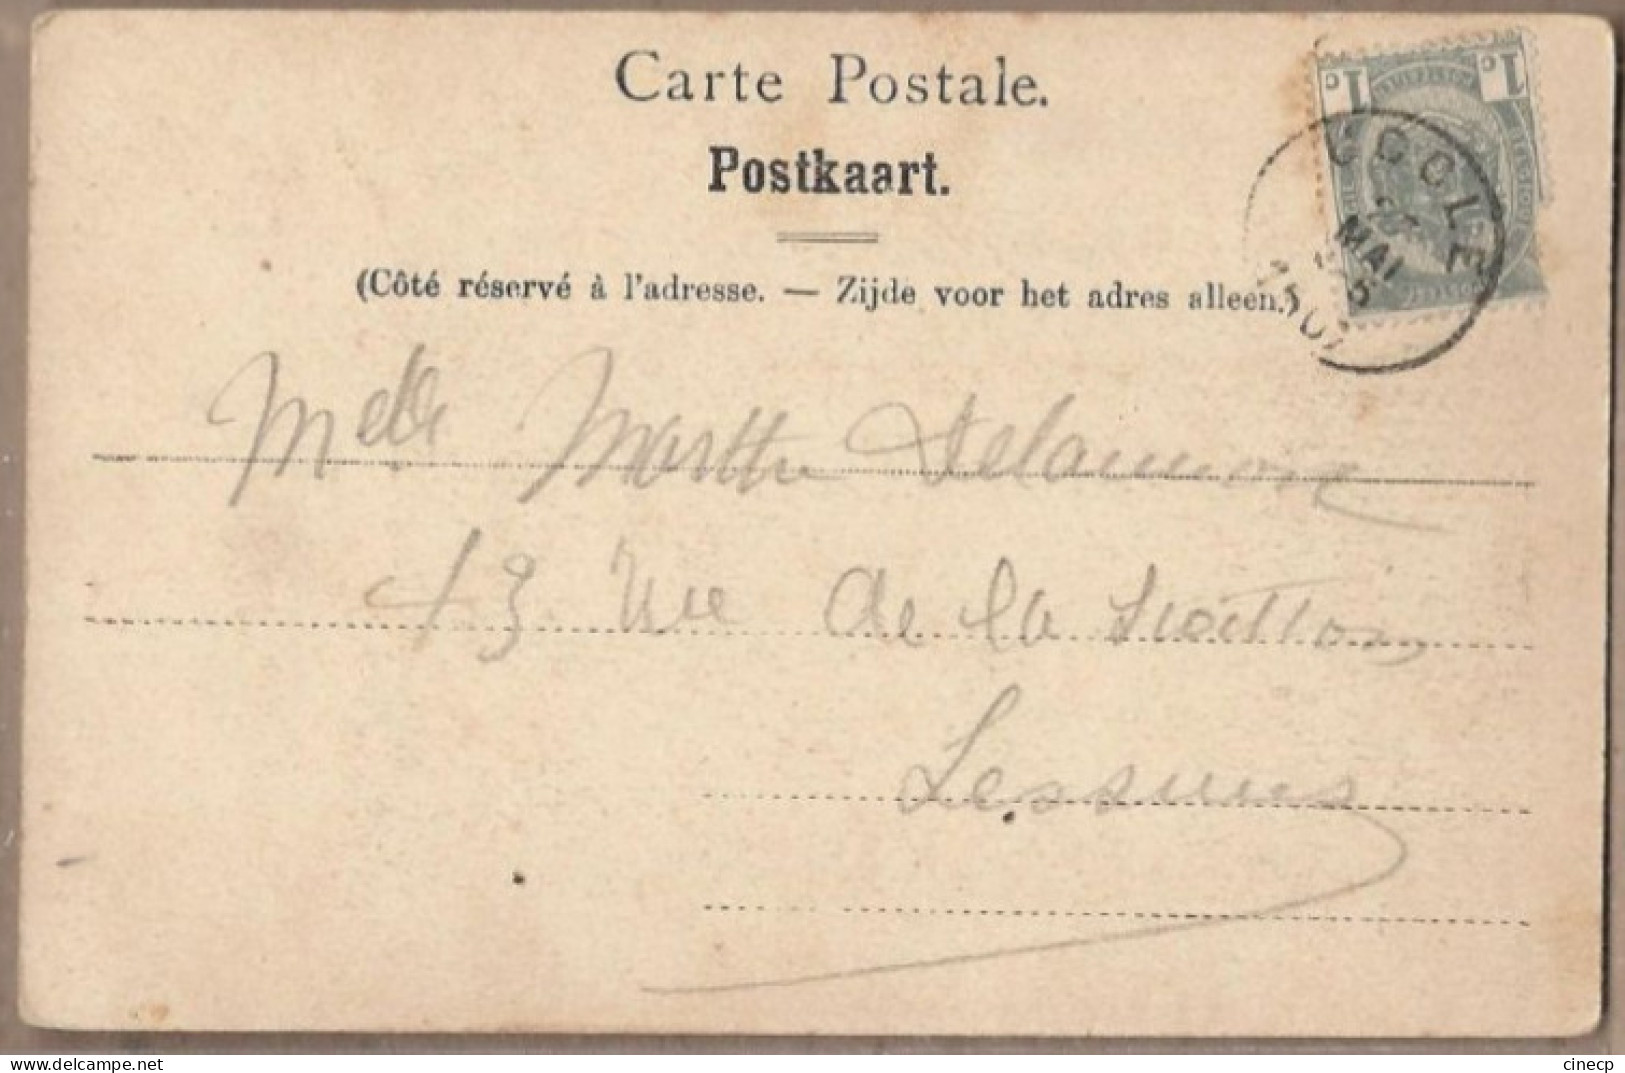 Carte Postale.
Postkaart.
(Côté réservé à l'adresse. — Zijde voor het adres alleen.)
1 c 1 c
UCCLE
MAI
Melle Marthe Delaunnoix
13 rue de la Station
Lessines
cinecp